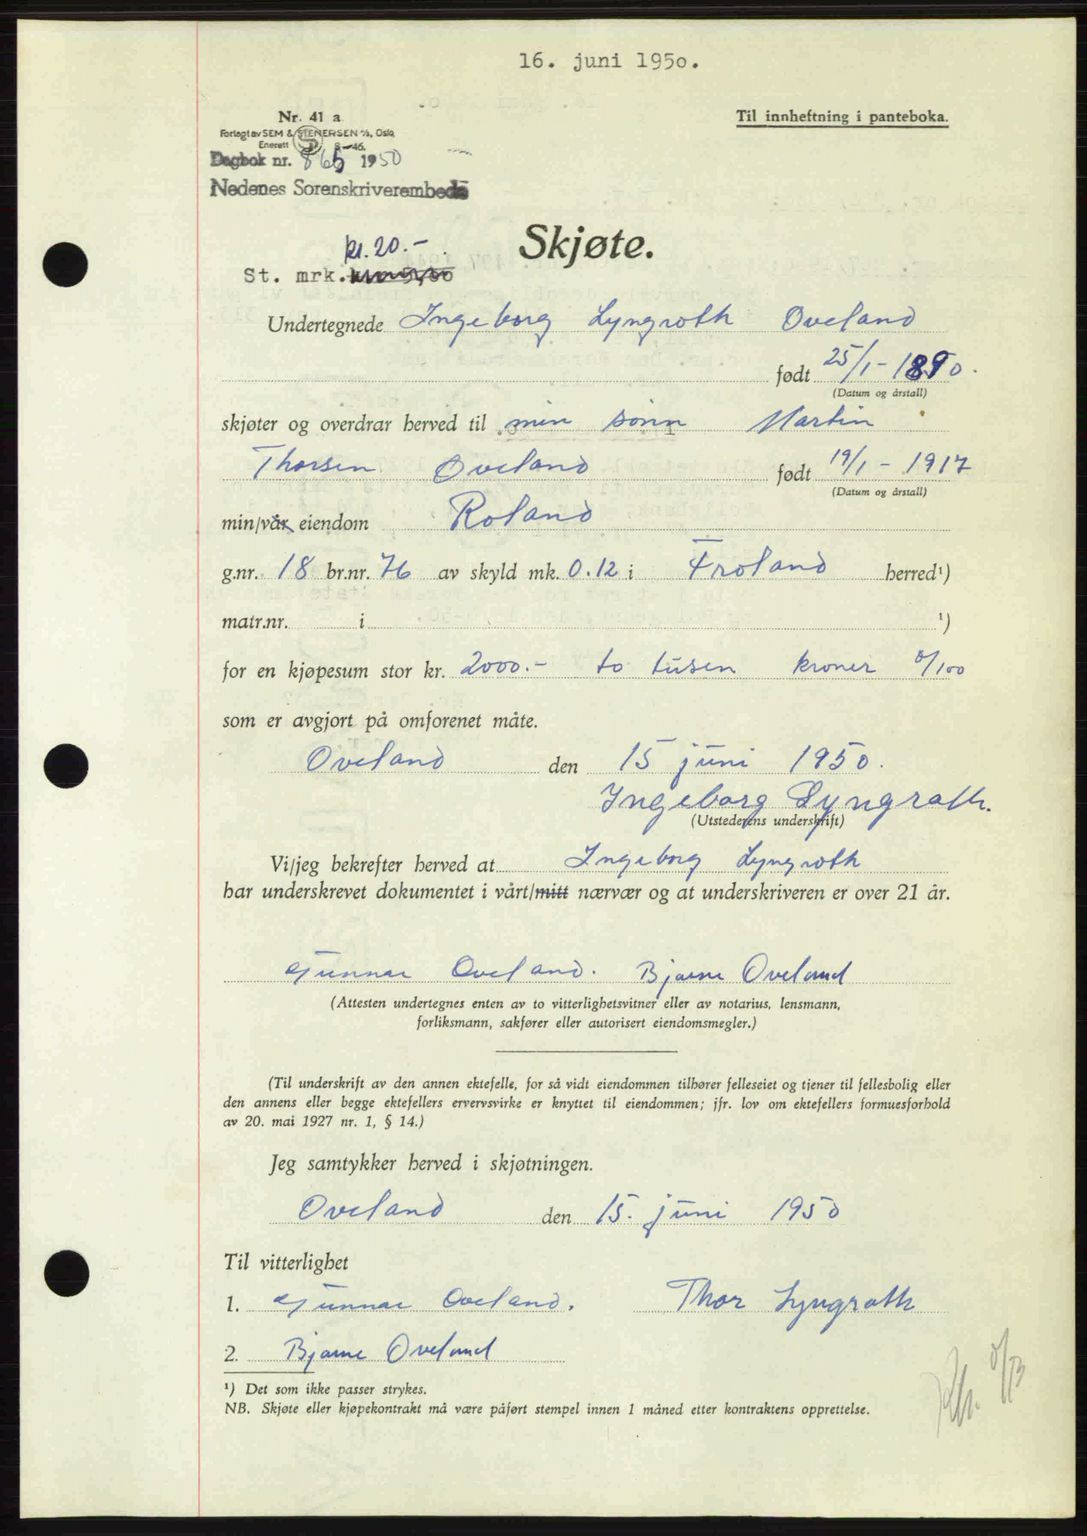 16. juni 1950.
Nr. 41 a
Til innheftning i panteboka.
Forlagt av SEM & STENERSEN A/S, Oslo
Enerett 8-46.
Dagbok nr. 865 1950
Nedenes Sorenskriverembede
kr. 20.-
Skjøte.
St. mrk.
Undertegnede Ingeborg Lyngroth Oveland
født 25/1 - 1890.
(Datum og årstall)
skjøter og overdrar herved til min sønn Martin
Thorsen Oveland født 19/1 - 1917
(Datum og årstall)
min/vår eiendom Roland
g.nr. 18 br.nr. 76 av skyld mk. 0.12 i Froland herred¹)
matr.nr. i ¹)
for en kjøpesum stor kr. 2000.- to tusen kroner 0/100
som er avgjort på omforenet måte.
Oveland den 15 juni 1950.
Ingeborg Lyngroth.
(Utstederens underskrift)
Vi/jeg bekrefter herved at Ingeborg Lyngroth
har underskrevet dokumentet i vårt/mitt nærvær og at underskriveren er over 21 år.
Gunnar Oveland. Bjarne Oveland
(Attesten undertegnes enten av to vitterlighetsvitner eller av notarius, lensmann,
forliksmann, sakfører eller autorisert eiendomsmegler.)
(Til underskrift av den annen ektefelle, for så vidt eiendommen tilhører felleseiet og tjener til fellesbolig eller
den annens eller begge ektefellers ervervsvirke er knyttet til eiendommen; jfr. lov om ektefellers formuesforhold
av 20. mai 1927 nr. 1, § 14.)
Jeg samtykker herved i skjøtningen.
Oveland den 15. juni 1950
Til vitterlighet
1. Gunnar Oveland. Thor Lyngroth
2. Bjarne Oveland
¹) Det som ikke passer strykes.
NB. Skjøte eller kjøpekontrakt må være påført stempel innen 1 måned etter kontraktens opprettelse.